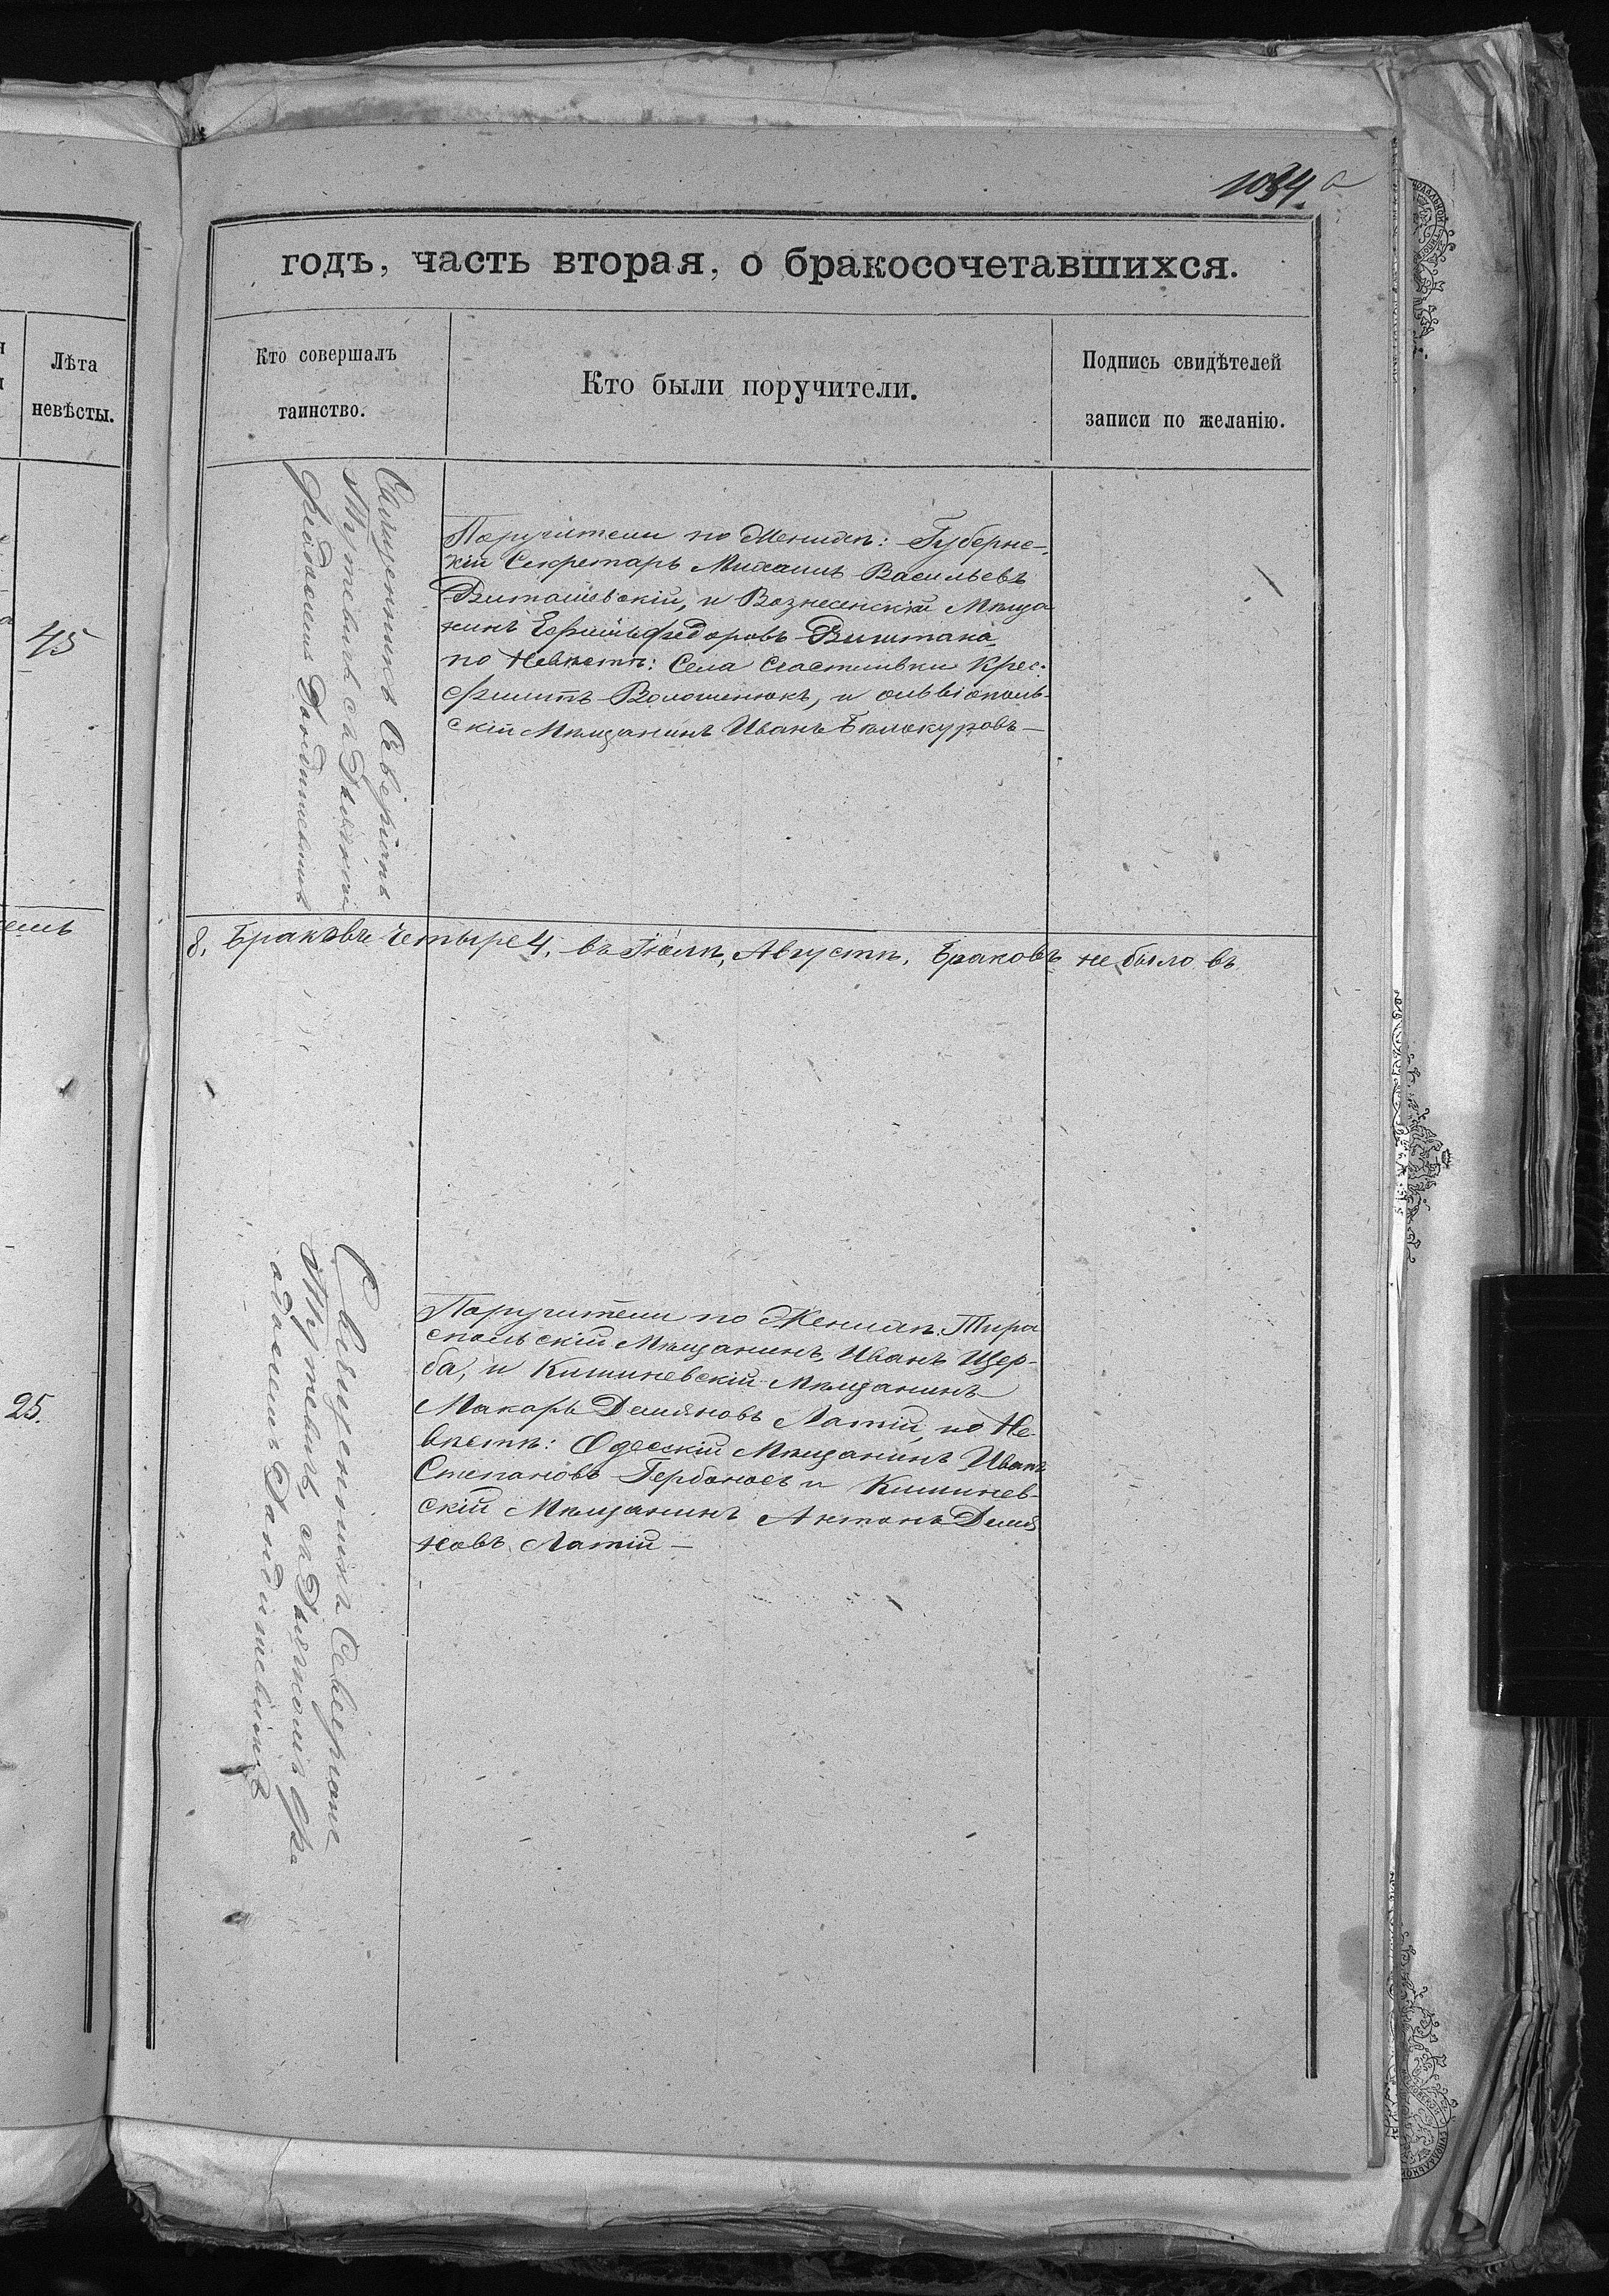 1034.
годъ, часть вторая, о бракосочетавшихся.
Лѣта
невѣсты.
Кто совершалъ
таинство.
Кто были поручители.
Подпись свидѣтелей
записи по желанію.
45
Священникъ Северіанъ
съ Дьячкомъ
Поручители по Женихѣ: Губернс-
кій Секретарь Михаилъ Васильевъ
Виташевскій, и Вознесенскій Мѣща
нинъ Ефимъ Федоровъ
по Невѣстѣ: Села Счастливки Крес.
Филипъ Волошенюкъ, и Ольвіополь-
скій Мѣщанинъ Иванъ Бѣлокуровъ—
8. Браковъ четыре 4. въ Іюлѣ, Августѣ, Браковъ не было въ
25.
Священникъ Северіанъ
съ Дьячкомъ
Поручители по Женихѣ: Тира
спольскій Мѣщанинъ, Иванъ Щер-
ба, и Кишиневскій Мѣщанинъ
Макаръ Демяновъ Латій, по Не-
вѣстѣ: Одесскій Мѣщанинъ Иванъ
Степановъ Гербановъ и Кишинев-
скій Мѣщанинъ Антонъ Демя
новъ Латій—